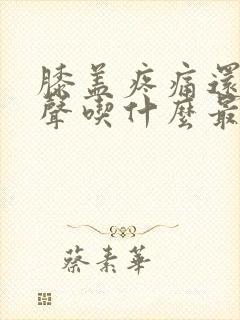 膝盖疼痛還
聲喫什麼最
蔡素華